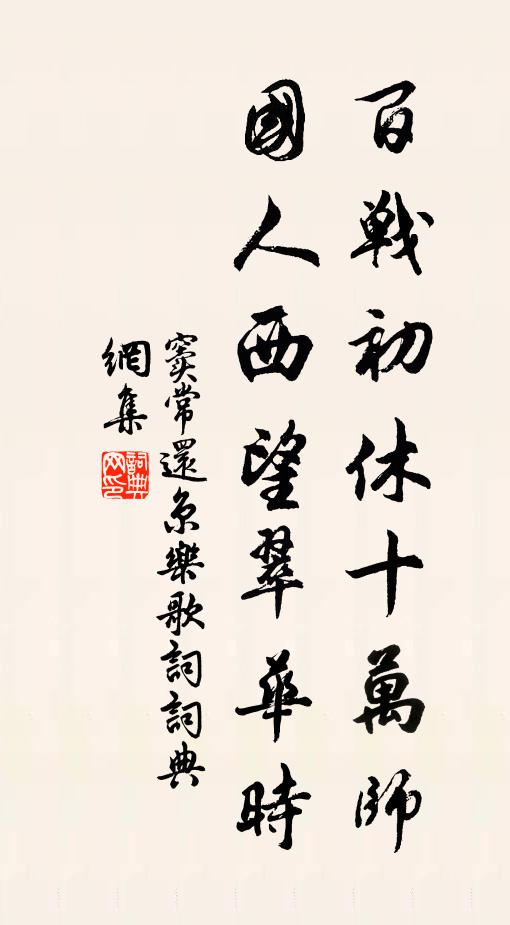 百戰初休十萬師
國人西望翠華時
竇常還京樂歌詞詞典
網集
詞典網印